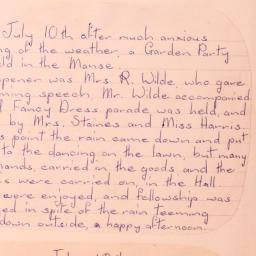 July 10th after much anxious
ng of the weather, a Garden Party
ld in the Manse.
opener was Mrs. R. Wilde, who gave
ming speech, Mr. Wilde accompanied
Fancy Dress parade was held, and
by Mrs. Staines and Miss Harris.
s point the rain came down and put
to the dancing on the lawn, but many
hands, carried in the goods and the
s were carried on, in the Hall.
were enjoyed, and fellowship was
ed in spite of the rain teeming
down outside, a happy afternoon.